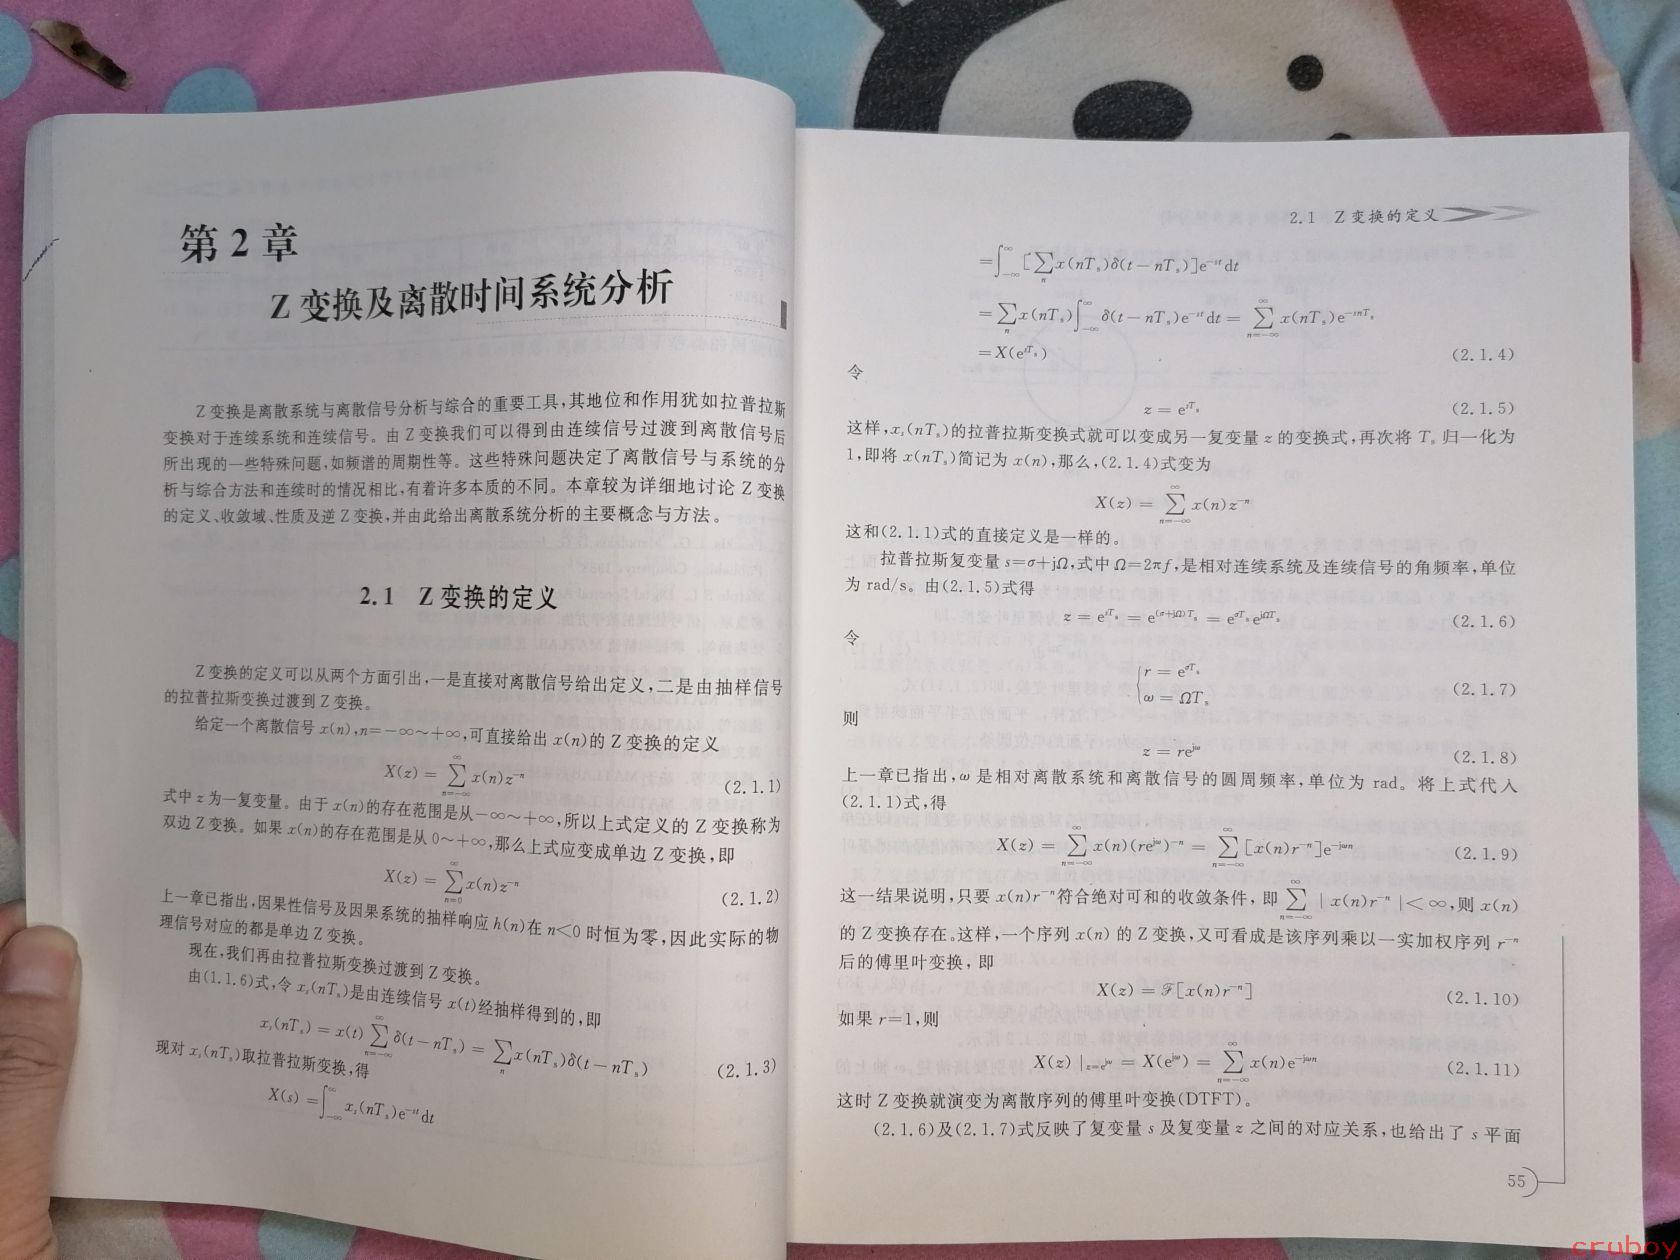 第 2 章
Z 变换及离散时间系统分析
Z 变换是离散系统与离散信号分析与综合的重要工具,其地位和作用犹如拉普拉斯
变换对于连续系统和连续信号。由 Z 变换我们可以得到由连续信号过渡到离散信号后
所出现的一些特殊问题,如频谱的周期性等。这些特殊问题决定了离散信号与系统的分
析与综合方法和连续时的情况相比,有着许多本质的不同。本章较为详细地讨论 Z 变换
的定义、收敛域、性质及逆 Z 变换,并由此给出离散系统分析的主要概念与方法。
2.1 Z 变换的定义
Z 变换的定义可以从两个方面引出,一是直接对离散信号给出定义,二是由抽样信号
的拉普拉斯变换过渡到 Z 变换。
给定一个离散信号 x(n),n=−∞~+∞,可直接给出 x(n)的 Z 变换的定义
X(z) = ∑_{n=−∞}^{∞} x(n)z⁻ⁿ (2.1.1)
式中 z 为一复变量。由于 x(n)的存在范围是从−∞~+∞,所以上式定义的 Z 变换称为
双边 Z 变换。如果 x(n)的存在范围是从 0~+∞,那么上式应变成单边 Z 变换,即
X(z) = ∑_{n=0}^{∞} x(n)z⁻ⁿ (2.1.2)
上一章已指出,因果性信号及因果系统的抽样响应 h(n)在 n<0 时恒为零,因此实际的物
理信号对应的都是单边 Z 变换。
现在,我们再由拉普拉斯变换过渡到 Z 变换。
由(1.1.6)式,令 x_s(nT_s)是由连续信号 x(t)经抽样得到的,即
x_s(nT_s) = x(t) ∑_{n=−∞}^{∞} δ(t−nT_s) = ∑_n x(nT_s)δ(t−nT_s) (2.1.3)
现对 x_s(nT_s)取拉普拉斯变换,得
X(s) = ∫_{−∞}^{∞} x_s(nT_s)e^{−st}dt
2.1 Z 变换的定义
=∫_{−∞}^{∞} [∑_n x(nT_s)δ(t−nT_s)]e^{−st}dt
=∑_n x(nT_s)∫_{−∞}^{∞} δ(t−nT_s)e^{−st}dt = ∑_{n=−∞}^{∞} x(nT_s)e^{−snT_s}
=X(e^{sT_s}) (2.1.4)
令
z = e^{sT_s} (2.1.5)
这样,x_s(nT_s)的拉普拉斯变换式就可以变成另一复变量 z 的变换式,再次将 T_s 归一化为
1,即将 x(nT_s)简记为 x(n),那么,(2.1.4)式变为
X(z) = ∑_{n=−∞}^{∞} x(n)z⁻ⁿ
这和(2.1.1)式的直接定义是一样的。
拉普拉斯复变量 s=σ+jΩ,式中 Ω=2πf,是相对连续系统及连续信号的角频率,单位
为 rad/s。由(2.1.5)式得
z = e^{sT_s} = e^{(σ+jΩ)T_s} = e^{σT_s}e^{jΩT_s} (2.1.6)
令
{ r = e^{σT_s}
ω = ΩT_s (2.1.7)
则
z = re^{jω} (2.1.8)
上一章已指出,ω 是相对离散系统和离散信号的圆周频率,单位为 rad。将上式代入
(2.1.1)式,得
X(z) = ∑_{n=−∞}^{∞} x(n)(re^{jω})⁻ⁿ = ∑_{n=−∞}^{∞} [x(n)r⁻ⁿ]e^{−jωn} (2.1.9)
这一结果说明,只要 x(n)r⁻ⁿ符合绝对可和的收敛条件,即 ∑_{n=−∞}^{∞} |x(n)r⁻ⁿ|<∞,则 x(n)
的 Z 变换存在。这样,一个序列 x(n) 的 Z 变换,又可看成是该序列乘以一实加权序列 r⁻ⁿ
后的傅里叶变换,即
X(z) = ℱ[x(n)r⁻ⁿ] (2.1.10)
如果 r=1,则
X(z)|_{z=e^{jω}} = X(e^{jω}) = ∑_{n=−∞}^{∞} x(n)e^{−jωn} (2.1.11)
这时 Z 变换就演变为离散序列的傅里叶变换(DTFT)。
(2.1.6)及(2.1.7)式反映了复变量 s 及复变量 z 之间的对应关系,也给出了 s 平面
55
cruboy